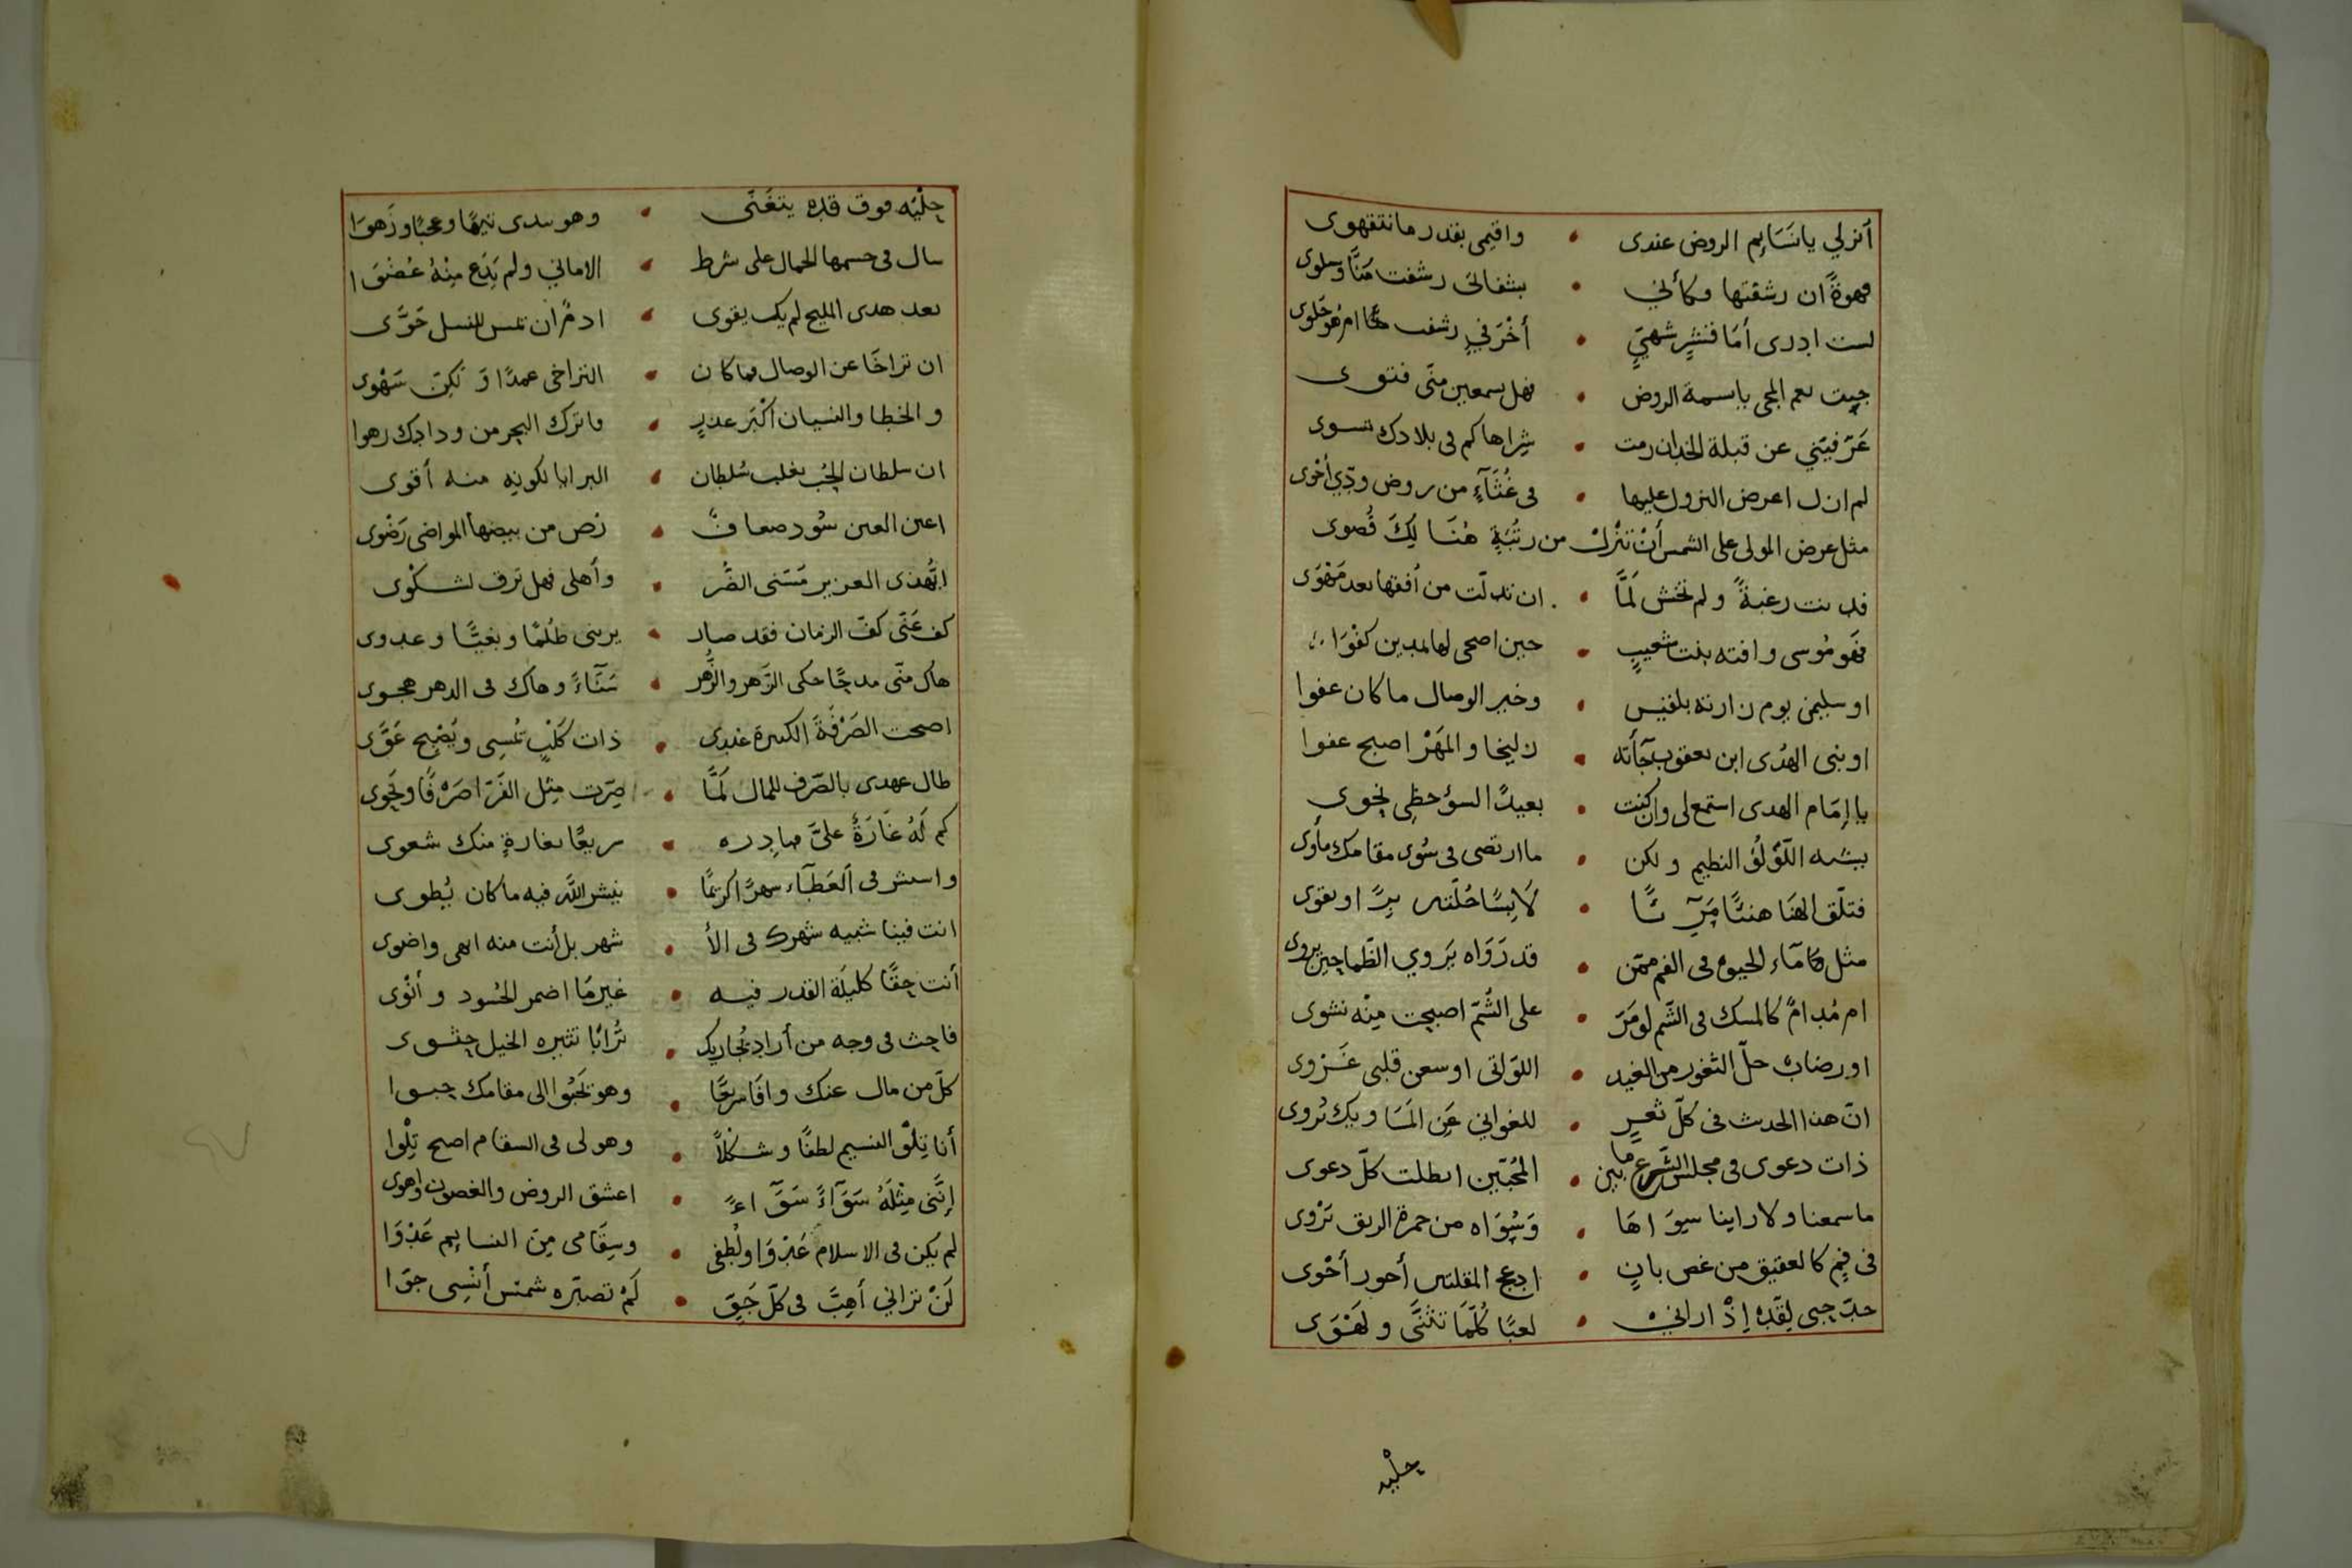 أنزلي يا نَسَايم الروض عندى • واقيمى بقدر ما نتقهوى
قهوةً ان رشفتها وكأني • بشفاتى رشفت مَنًّا وسلوى
لست ادرى أمَا قشرٍ شهيٍّ • أخْرَفي رشف ام هو حَلوى
جيت نعم المجى ياسمة الروض • فهل سمعين منّى فتوى
عَرّفيتني عن قبلة الخد ان رمت • شراها كم فى بلادك تسوى
لم ازل اعرض النزول عليها • فى غُثَآءٍ من روض ودّي أخْوى
مثل عرض المولى على الشمس أنْ تنْزل من رتْبَةٍ هُنَا لِكَ قُصوى
فدنت رغبةً ولم تخش لَمَّا • ان تدلّت من أفقها بعد مَهْوَى
فهو مُوسى وافته بنت شعيبٍ • حين اضحى لها بمدين كفْوَا
او سليمن يوم زارته بلقيس • وخير الوصال ما كان عفوا
او بنى الهدى ابن يعقوب جآأته • زليخا والمَهْرُ اصبح عفوا
يا إمَام الهدى استمع لى وان كنت • بعيدً السؤحظِى نحوى
بيشبه اللّؤلُؤ النظيم ولكن • ما ارتضى فى سُوى مقامك مأوى
فتلّق الهنَا هنئًا مَرِيّئًا • لَابِسًا حُلّتى بِرًّا وتقوى
مثل مَآء الحيوة فى الفم ممّن • قد رَوَاه يَروي الظّما حين يروى
ام مُدامٌ كالمسك فى الشّم لو مَرّ • على الشُّمّ اصبحت مِنْه نشوى
او رضابٌ حلّ الثغور من الغيد • اللّواتى اوسعن قلبى غَزوى
انّ هذا الحدث فى كلّ ثغرٍ • للغوانى عَن المسَاويك تُروى
ذات دعوى فى مجلس الشّرع ما بين • المُحبّين ابطلت كلّ دعوى
ما سمعنا ولا راينا سِوَاهَا • وَسُوَاه من حمرة الريق تَرْوى
فى فِمٍ كالعقيق من غصن بانٍ • ادعج المقلتين أحور أحْوى
حبّ حبى لِقدّهِ إِذْ ارانىْ • لعبًا كُلَّمَا تثنَّى ولَهْوَى
حِلْيه
حِلْيَه فوق قدّه يتغَنّى • وهو يبدى تيهًا وعجبًا وزَهوَا
سال فى جسمها الجمال على شرط • الامانى ولم يَدَع مِنْهُ عُضْوَا
بعد هدى المليح لم يك يقوى • ادمٌ ان يمس للنسل حَوَّى
ان تراخَا عن الوصال فما كان • التراخى عمدًا وَلكِنّ سَهْوى
والخطا والنسيان أكْبَر عذرٍ • فاترك البحر من ودادك رهوا
ان سلطان الحُبّ يغلب سُلطان • البرايا لكونه منه أقوى
اعين العين سُود ضعافٌ • من بيضها المواضى رَضْوى
ايُّهذى العزيز مَسّنى الضُّر • وأهلى فهل ترق لشكْوى
كف عَنّى كفّ الزمان فقد صار • يرينى ظُلمًا وبغيًّا وعدوى
هاك منّى مدحًا حكى الزَّهر والزُّهر • سَنَآءً وهاك فى الدهر هجوى
اصبحت الصَرْفَةَ الكبيرة عندى • ذات كَلْبٍ تمْسِى وتُصْبِح عَوَّى
طال عهدى بالصّرف للمال لَمَّا • صِرّت مِثل الفَرّا صَرْفًا ونَحوى
كم لَهُ غَارَةٌ علىَّ فبادره • سريعًا بغارةٍ منك شعوى
وانت فى العَطَآء شهرًا كريمًا • ينشر اللّه فيه ما كان يُطوى
انت فينا شبيه شهرك فى الأ • شهر بل أنت منه ابهى واضوى
أنت حِقًّا كليلة القدر فيه • غير ما اضمر الحُسود وأنْوى
فاحث فى وجه من أراد يُجاريك • تُرابًا تثيره الخيل حثوى
كلّ من مال عنك وافَا سريعًا • وهو يَحبُوا الى مقامك حبوا
أنا تِلْوُ النسيم لطفًا وشكْلاً • وهو لى فى السقام اصبح تِلْوا
إنَّنى مِثْلَهُ سَوَآءً سَوَّاءً • اعشق الروض والغصون واهوى
لم يكن فى الاسلام عَدْوَا ولُطفى • وسِقَامى مِنَ النسايم عَدْوَا
لَنْ ترانى أَهِبَّ فى كلّ جَوٍّ • لَمْ تصيّره شمسْ أنْسِى جوّا